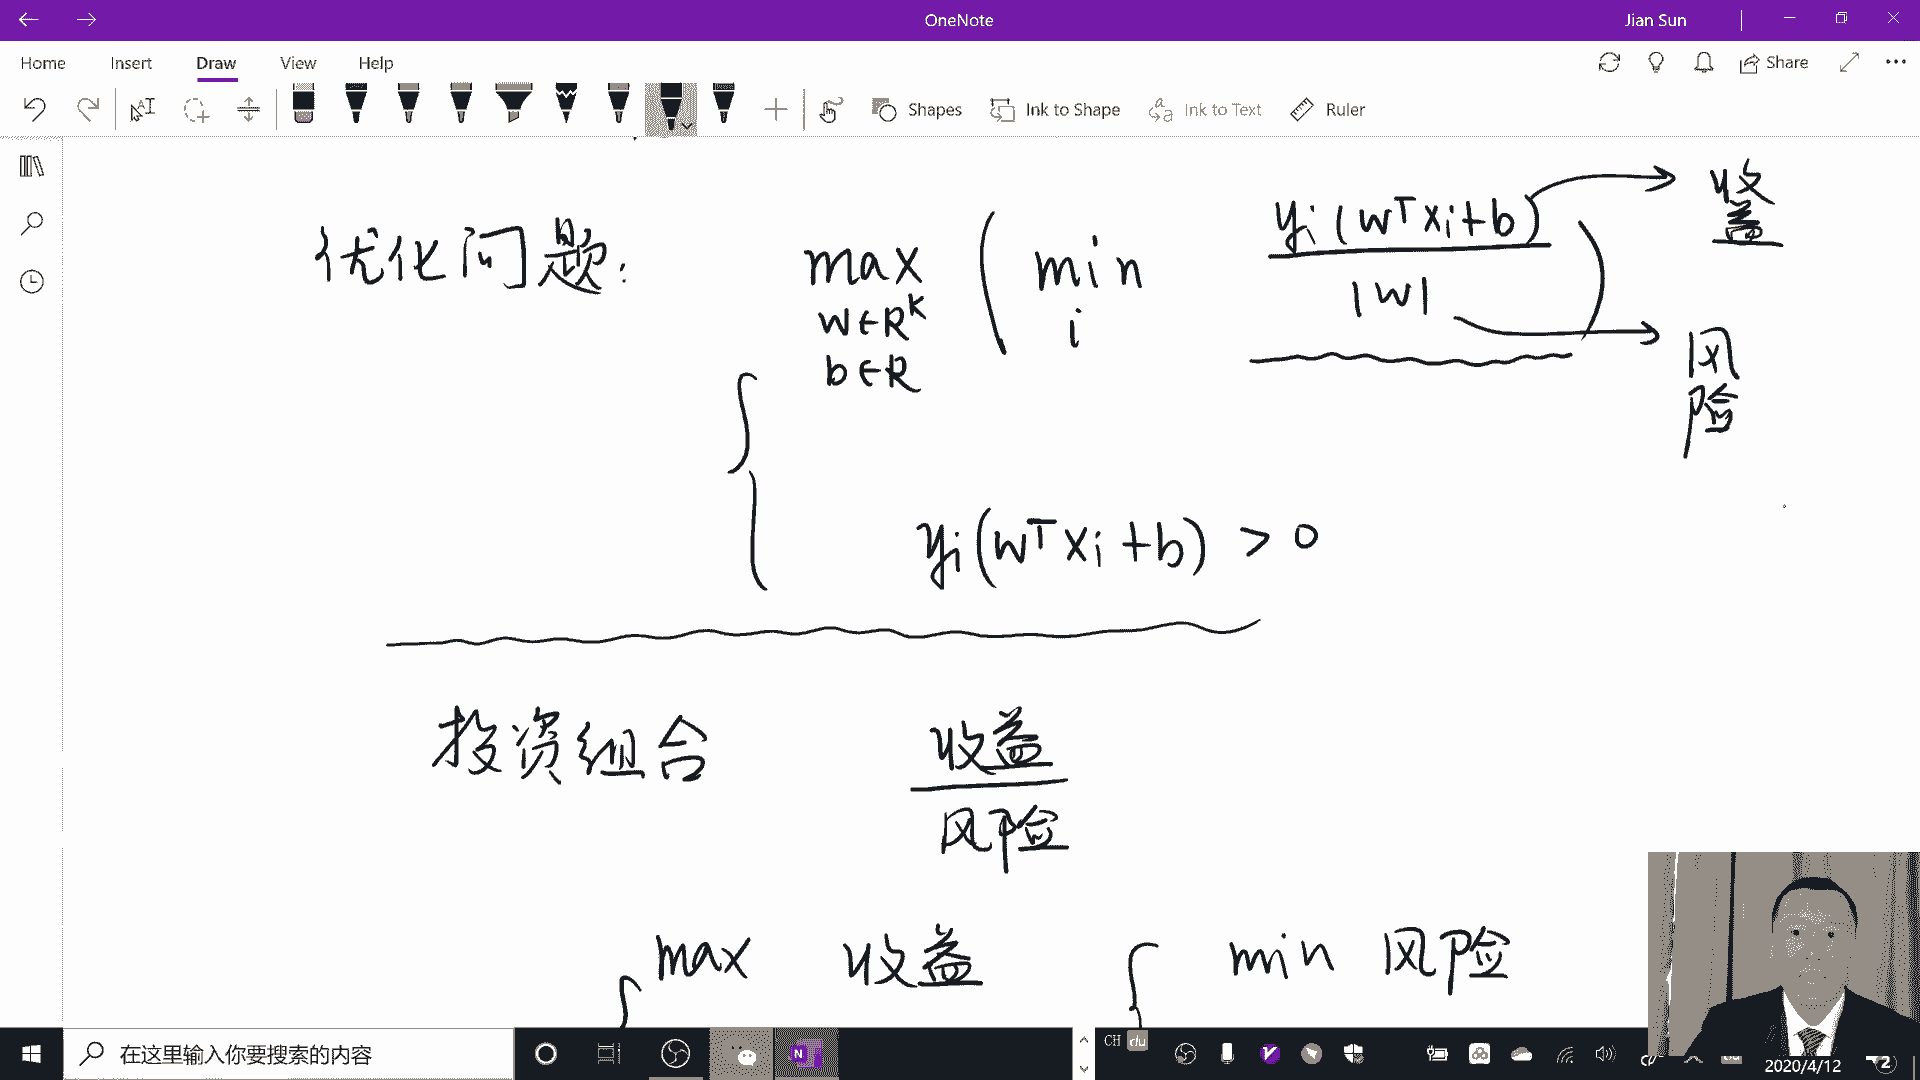 OneNote
Jian Sun
Home Insert Draw View Help
Share
Shapes Ink to Shape Ink to Text Ruler
优化问题: max ( min yi(wᵀxi+b) / |w| ) → 收益
w∈Rᴷ i → 风险
b∈R
yi(wᵀxi+b) > 0
投资组合 收益
风险
max 收益 min 风险
在这里输入你要搜索的内容
CH du
2020/4/12
2